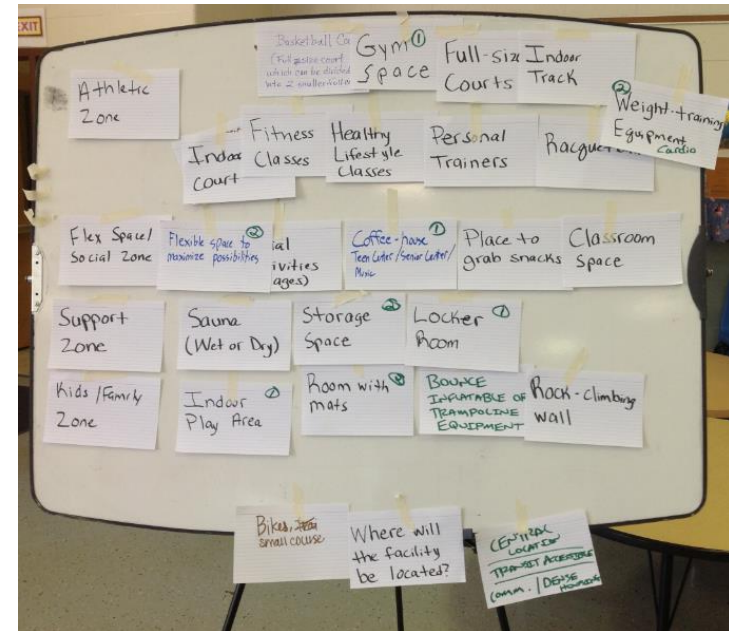 EXIT
Athletic
Zone
Basketball Co
(Full size court
which can be divided
into 2 smaller
Gym ①
Space
Full-size
Courts
Indoor
Track
② Weight-training
Equipment
Cardio
Indoor
Court
Fitness
Classes
Healthy
Lifestyle
Classes
Personal
Trainers
Racque
Flex Space/
Social Zone
Flexible space to ②
maximize possibilities
ial
ivities
ages)
Coffee-house ①
Teen Center/Senior Center/
Music
Place to
grab snacks
Classroom
Space
Support
Zone
Sauna
(Wet or Dry)
Storage ②
Space
Locker ①
Room
Kids/Family
Zone
Indoor ①
Play Area
Room with
mats
BOUNCE
INFLATABLE OF
TRAMPOLINE
EQUIPMENT
Rock-climbing
wall
Bikes,
small course
Where will
the facility
be located?
CENTRAL
LOCATION
TRANSIT ACCESSIBLE
COMM. / DENSE
HOUSING